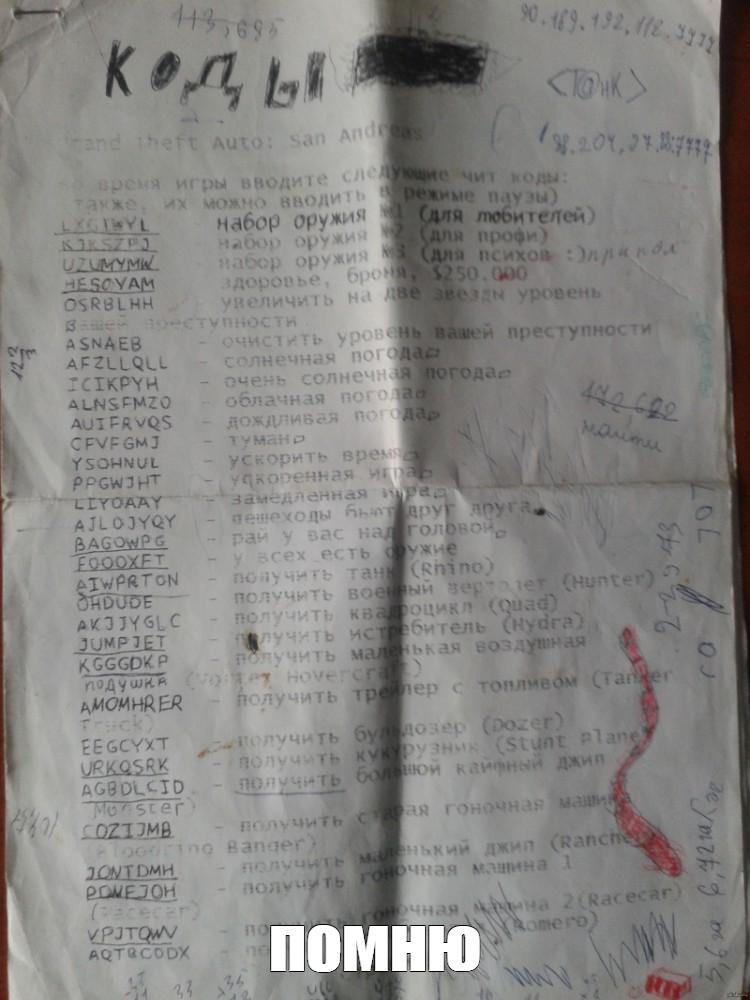 113,695
90.189.192.112.7777
КОДЫ
<T@нK>
Grand Theft Auto: San Andreas
98.204.
во время игры вводите следующие чит коды:
также, их можно вводить в режиме паузы)
LXGIWYL набор оружия №1 (для любителей)
KJKSZPJ набор оружия №2 (для профи)
UZUMYMW набор оружия №3 (для психов :) прикол
HESOYAM здоровье, броня, $250.000
OSRBLHH - увеличить на две звезды уровень
вашей преступности
ASNAEB - очистить уровень вашей преступности
AFZLLQLL - солнечная погода
ICIKPYH - очень солнечная погода
ALNSFMZO - облачная погода
AUIFRVQS - дождливая погода
CFVFGMJ - туман
YSOHNUL - ускорить время
PPGWJHT - ускоренная игра
LIYOAAY - замедленная игра
AJLOJYQY - пешеходы бьют друг друга
BAGOWPG - рай у вас над головой
FOOOXFT - у всех есть оружие
AIWPRTON - получить танк (Rhino)
OHDUDE - получить военный вертолет (Hunter)
AKJJYGLC - получить квадроцикл (Quad)
JUMPJET - получить истребитель (Hydra)
KGGGDKP - получить маленькая воздушная
подушка (Vortex Hovercraft)
AMOMHRER - получить трейлер с топливом (Tanker
Truck)
EEGCYXT - получить бульдозер (Dozer)
URKQSRK - получить кукурузник (Stunt Plane)
AGBDLCID - получить большой каифный джип
Monster)
CQZIJMB - получить старая гоночная машина
(Bloodring Banger)
JQNTDMH - получить маленький джип (Rancher
PDNEJOH - получить гоночная машина 1
(Racecar)
VPJTQWV - гоночная машина 2(Racecar)
AQTBCODX - (Romero)
122
3
172,622
найти
ПОМНЮ